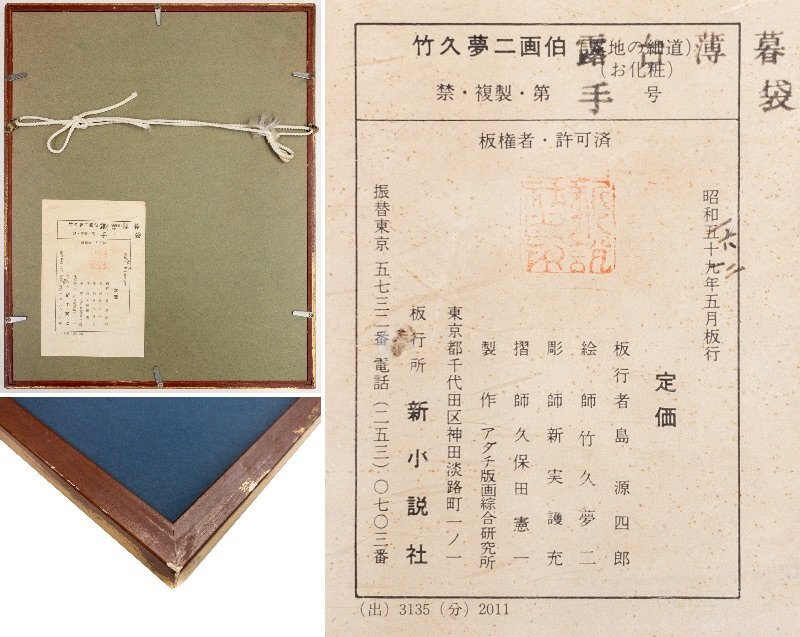 竹久夢二画伯
地の細道)
(お化粧)
露台薄暮
手袋
禁・複製・第 号
板権者・許可済
昭和五十九年五月板行
定価
板行者 島源四郎
絵師 竹久夢二
彫師 新実護允
摺師 久保田憲一
製作 アダチ版画綜合研究所
東京都千代田区神田淡路町一ノ一
板行所 新小説社
振替東京五七三二一番 電話(二五三)〇七〇三番
(出) 3135 (分) 2011